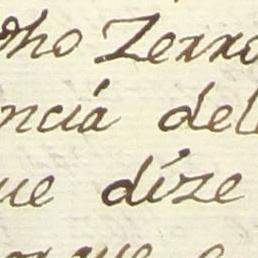 dho Zerro
ncia del
ue dize